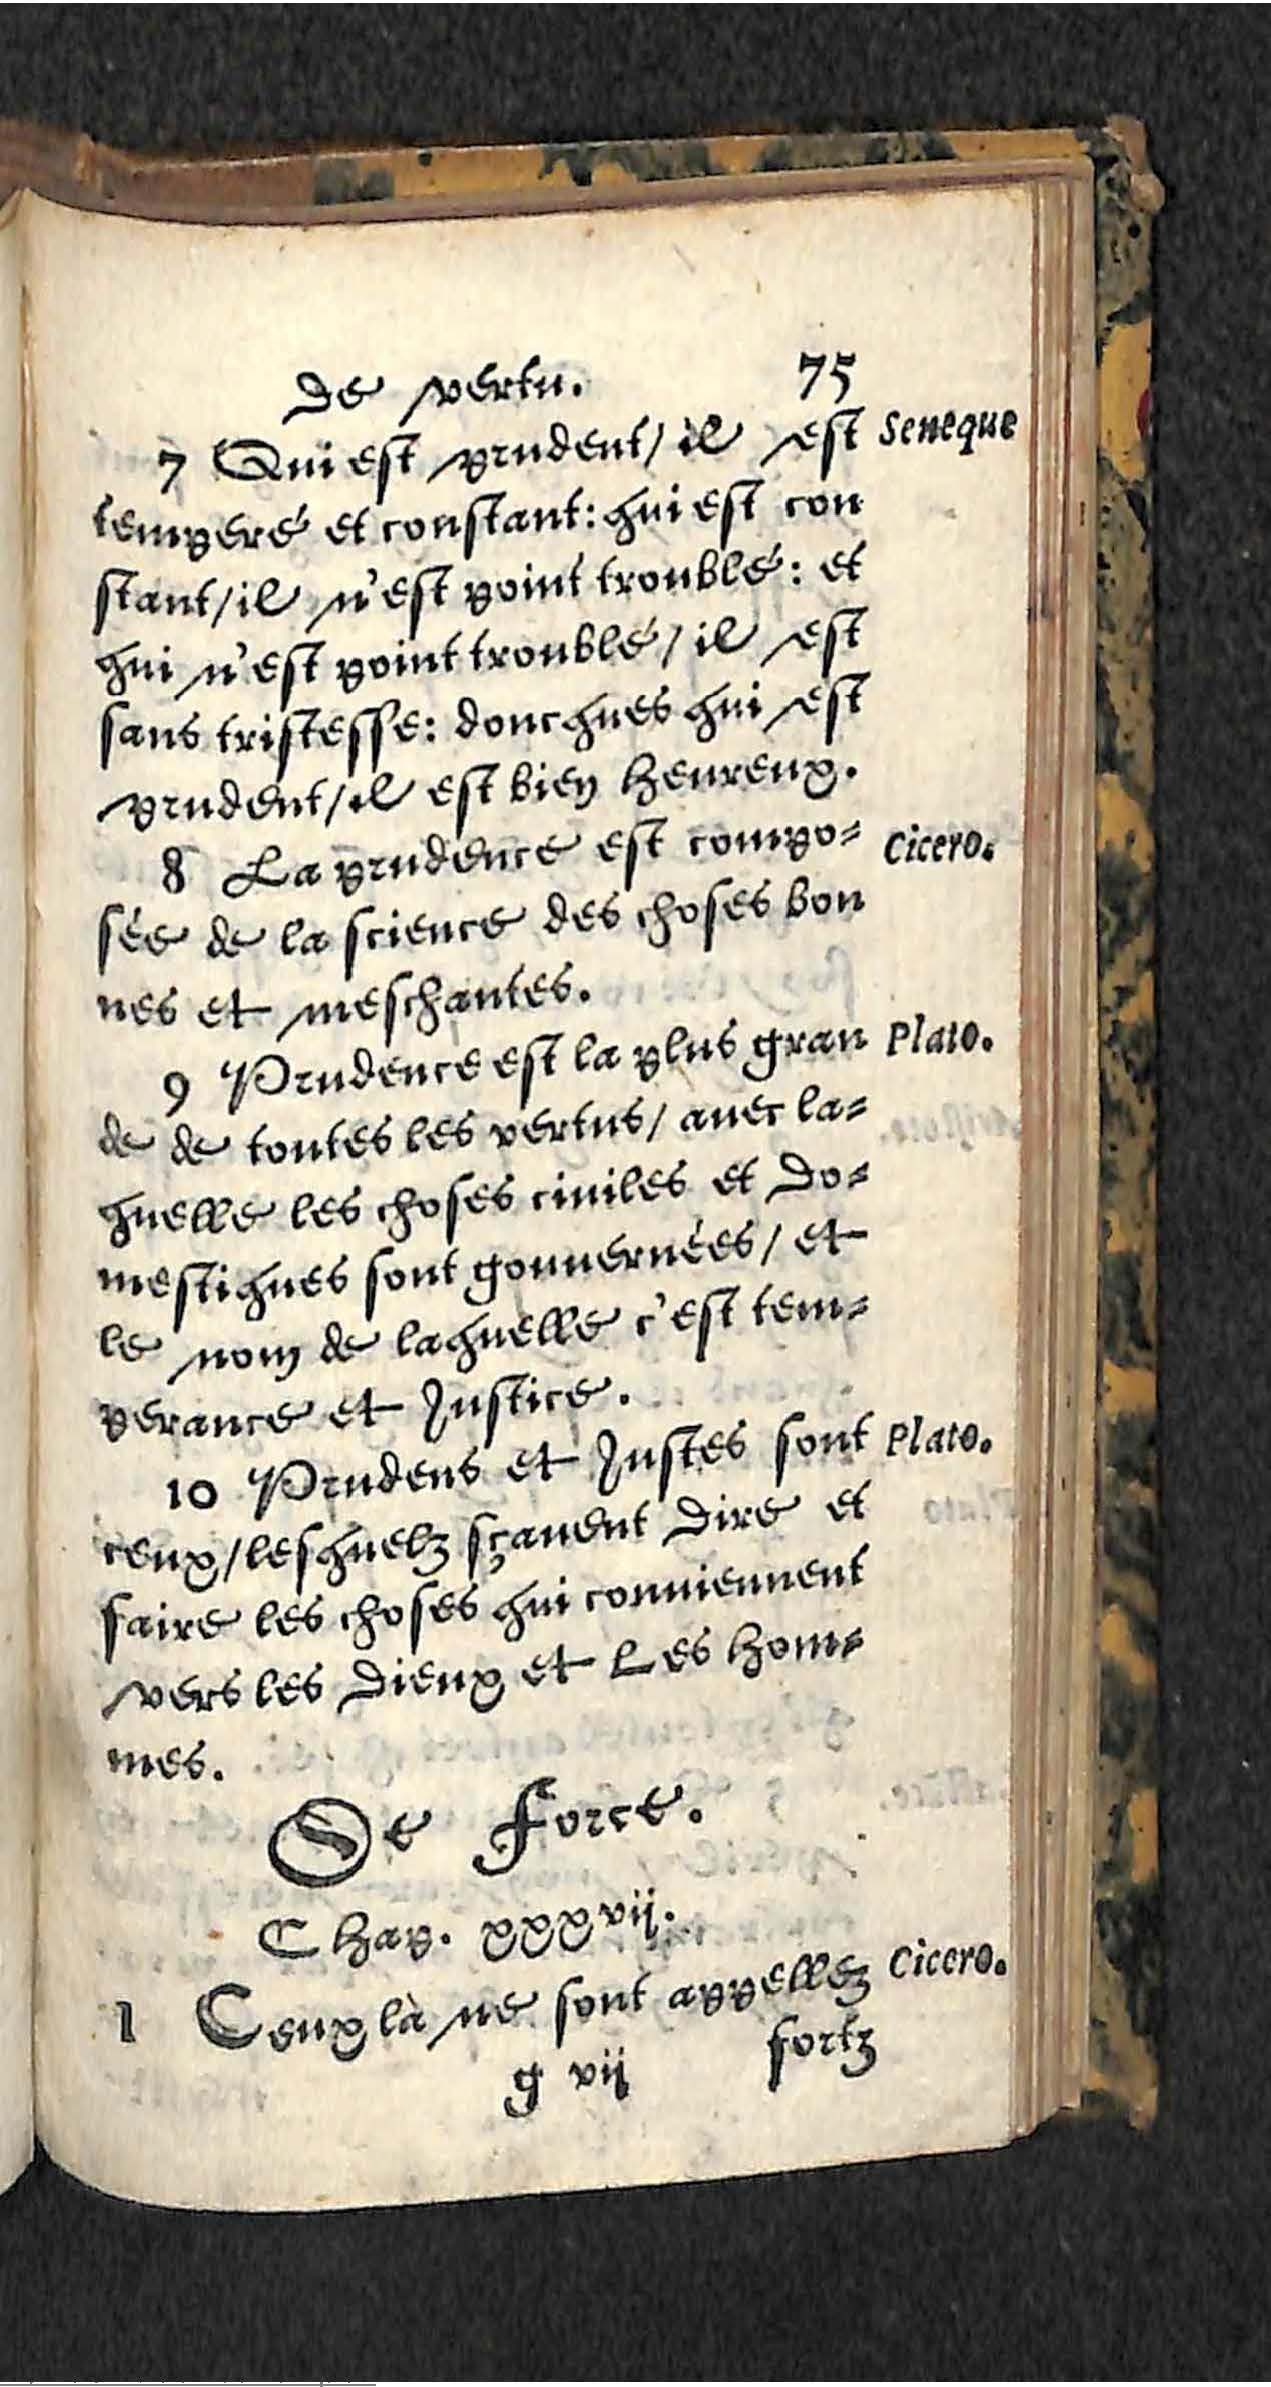 de vertu. 75
7 Qui est prudent/ il est Seneque
temperé et constant: qui est con
stant/ il n'est point troublé: et
qui n'est point troublé/ il est
sans tristesse: doncques qui est
prudent/ il est bien heureux.
8 La prudence est compo= Cicero.
sée de la science des choses bon
nes et meschantes.
9 Prudence est la plus gran Plato.
de de toutes les vertus/ auec la=
quelle les choses ciuiles et do=
mestiques sont gouuernées/ et
le nom de laquelle c'est tem=
perance et Justice.
10 Prudens et Justes sont Plato.
ceux/ lesquelz sçauent dire et
faire les choses qui conuiennent
vers les dieux et Les hom=
mes.
De Force.
Chap. xxxvij.
1 Ceux là ne sont appellez Cicero.
fortz
g vij